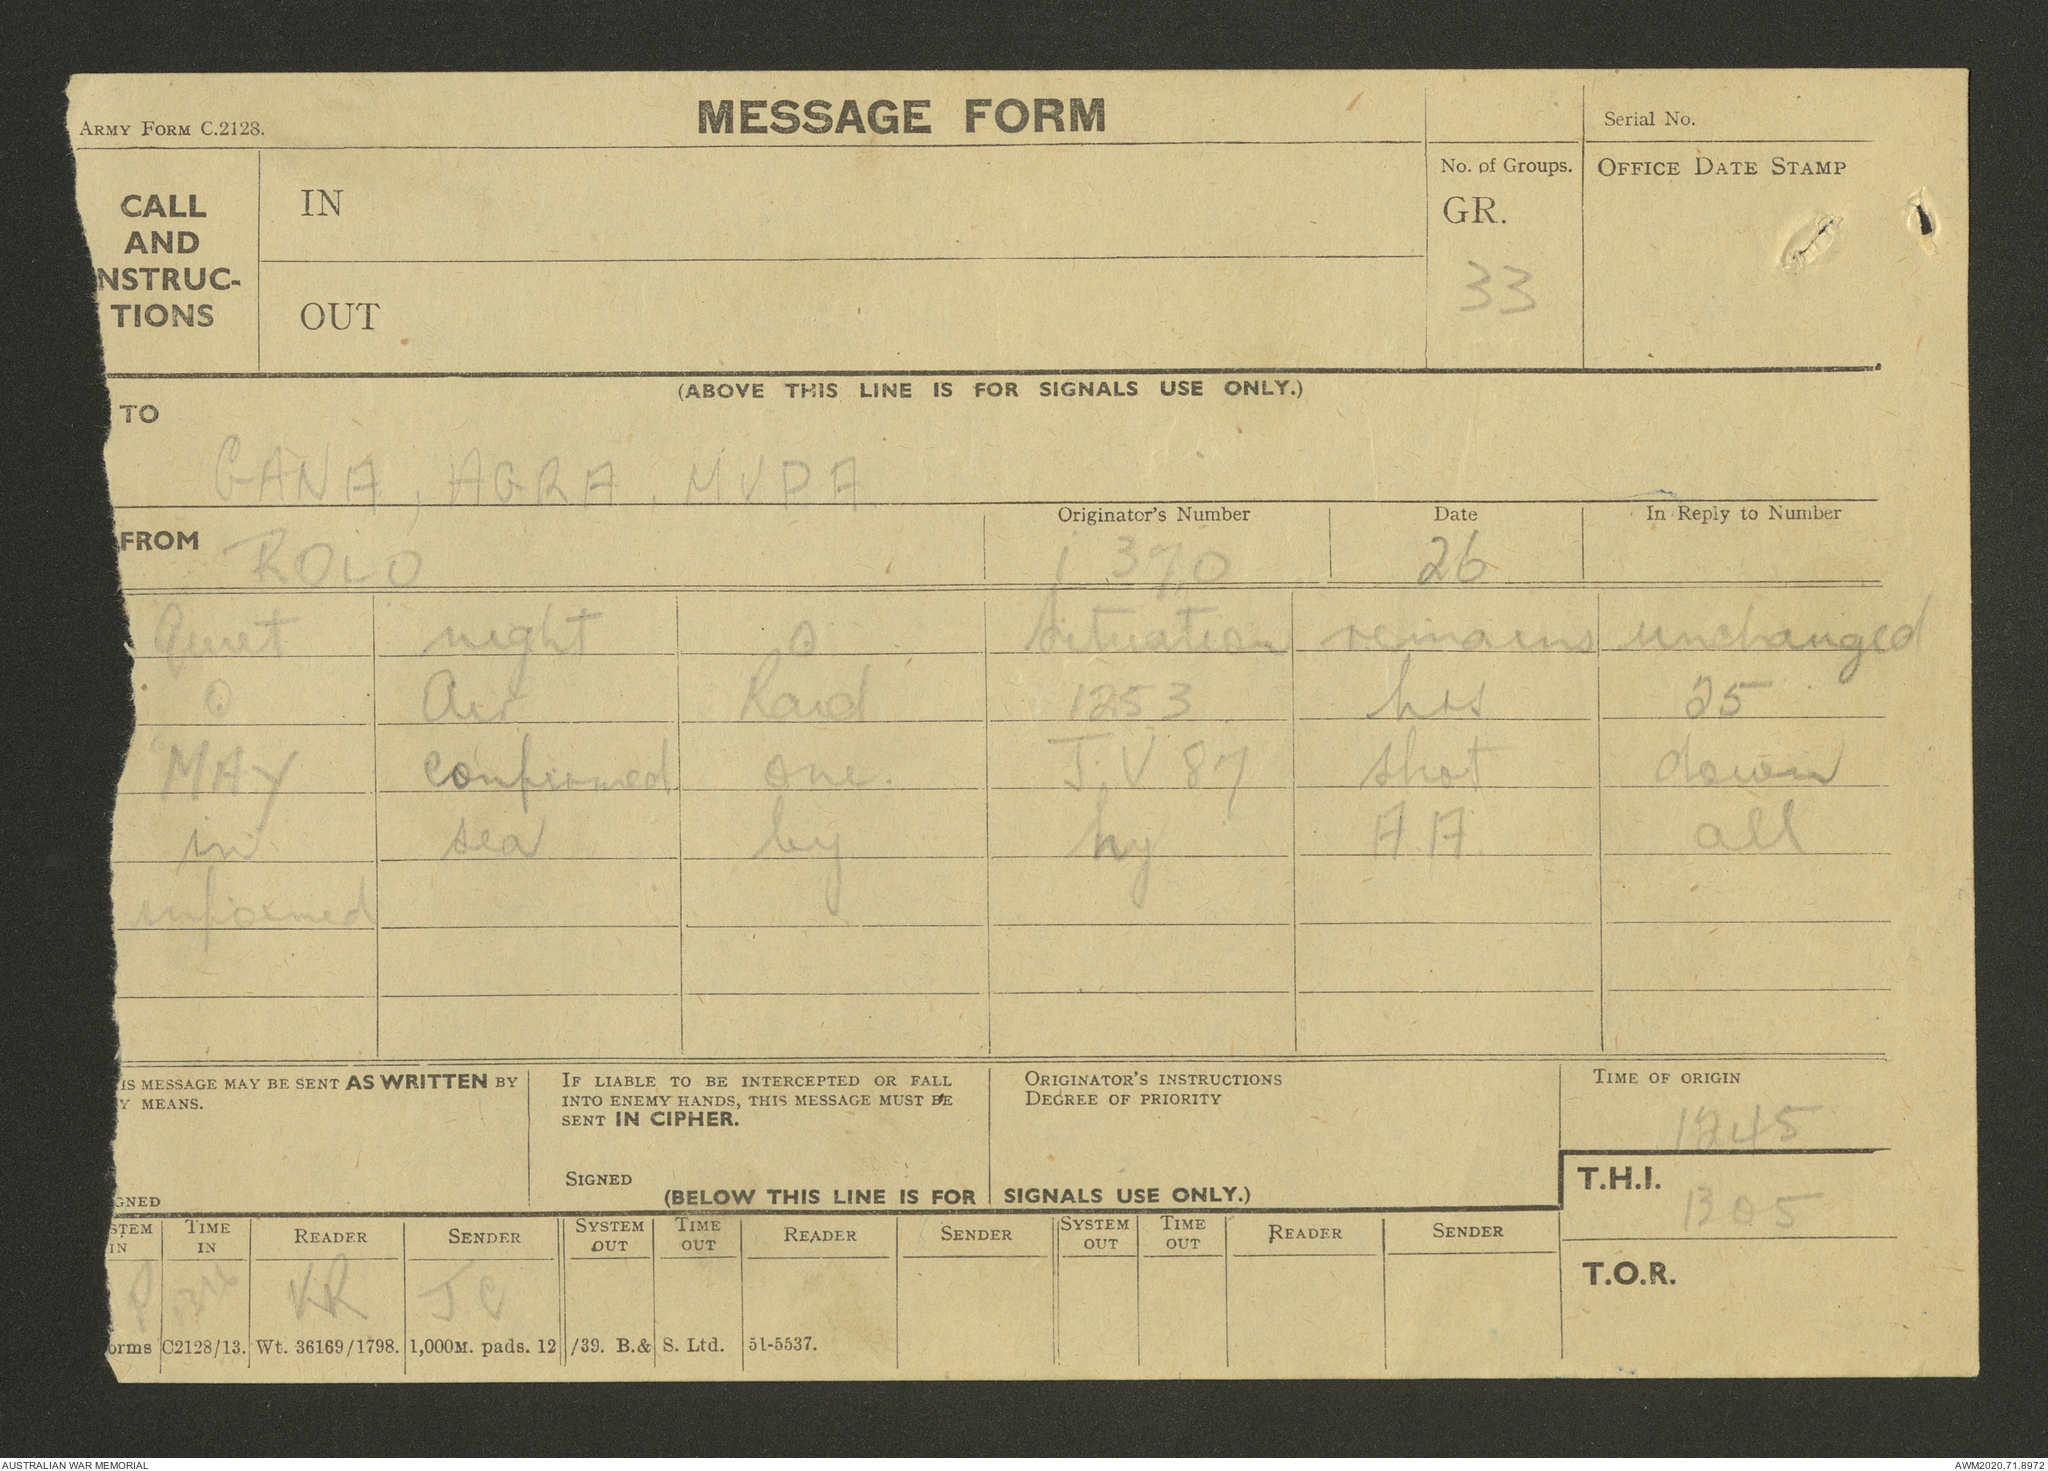 ARMY FORM C.2128.
MESSAGE FORM
Serial No.
CALL
AND
NSTRUC-
TIONS
IN
OUT
No. of Groups.
GR.
33
OFFICE DATE STAMP
(ABOVE THIS LINE IS FOR SIGNALS USE ONLY.)
TO
GANA, AGRA, MVPA
FROM
ROLO
Originator's Number
Date
26
In Reply to Number
Quiet night O situation remains unchanged
O Air Raid 1253 hrs 25
MAY confirmed one J.V 87 shot down
in sea by hy A.A. all
informed
IS MESSAGE MAY BE SENT AS WRITTEN BY
Y MEANS.
GNED
IF LIABLE TO BE INTERCEPTED OR FALL
INTO ENEMY HANDS, THIS MESSAGE MUST BE
SENT IN CIPHER.
SIGNED
ORIGINATOR'S INSTRUCTIONS
DEGREE OF PRIORITY
TIME OF ORIGIN
1245
T.H.I.
1305
T.O.R.
(BELOW THIS LINE IS FOR SIGNALS USE ONLY.)
STEM IN TIME IN READER SENDER SYSTEM OUT TIME OUT READER SENDER SYSTEM OUT TIME OUT READER SENDER
P KR JC
orms C2128/13. Wt. 36169/1798. 1,000M. pads. 12/39. B.& S. Ltd. 51-5537.
AUSTRALIAN WAR MEMORIAL
AWM2020.71.8972